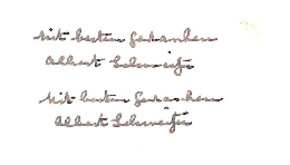 Mit besten Gedanken
Albert Schweitzer
Mit besten Gedanken
Albert Schweitzer